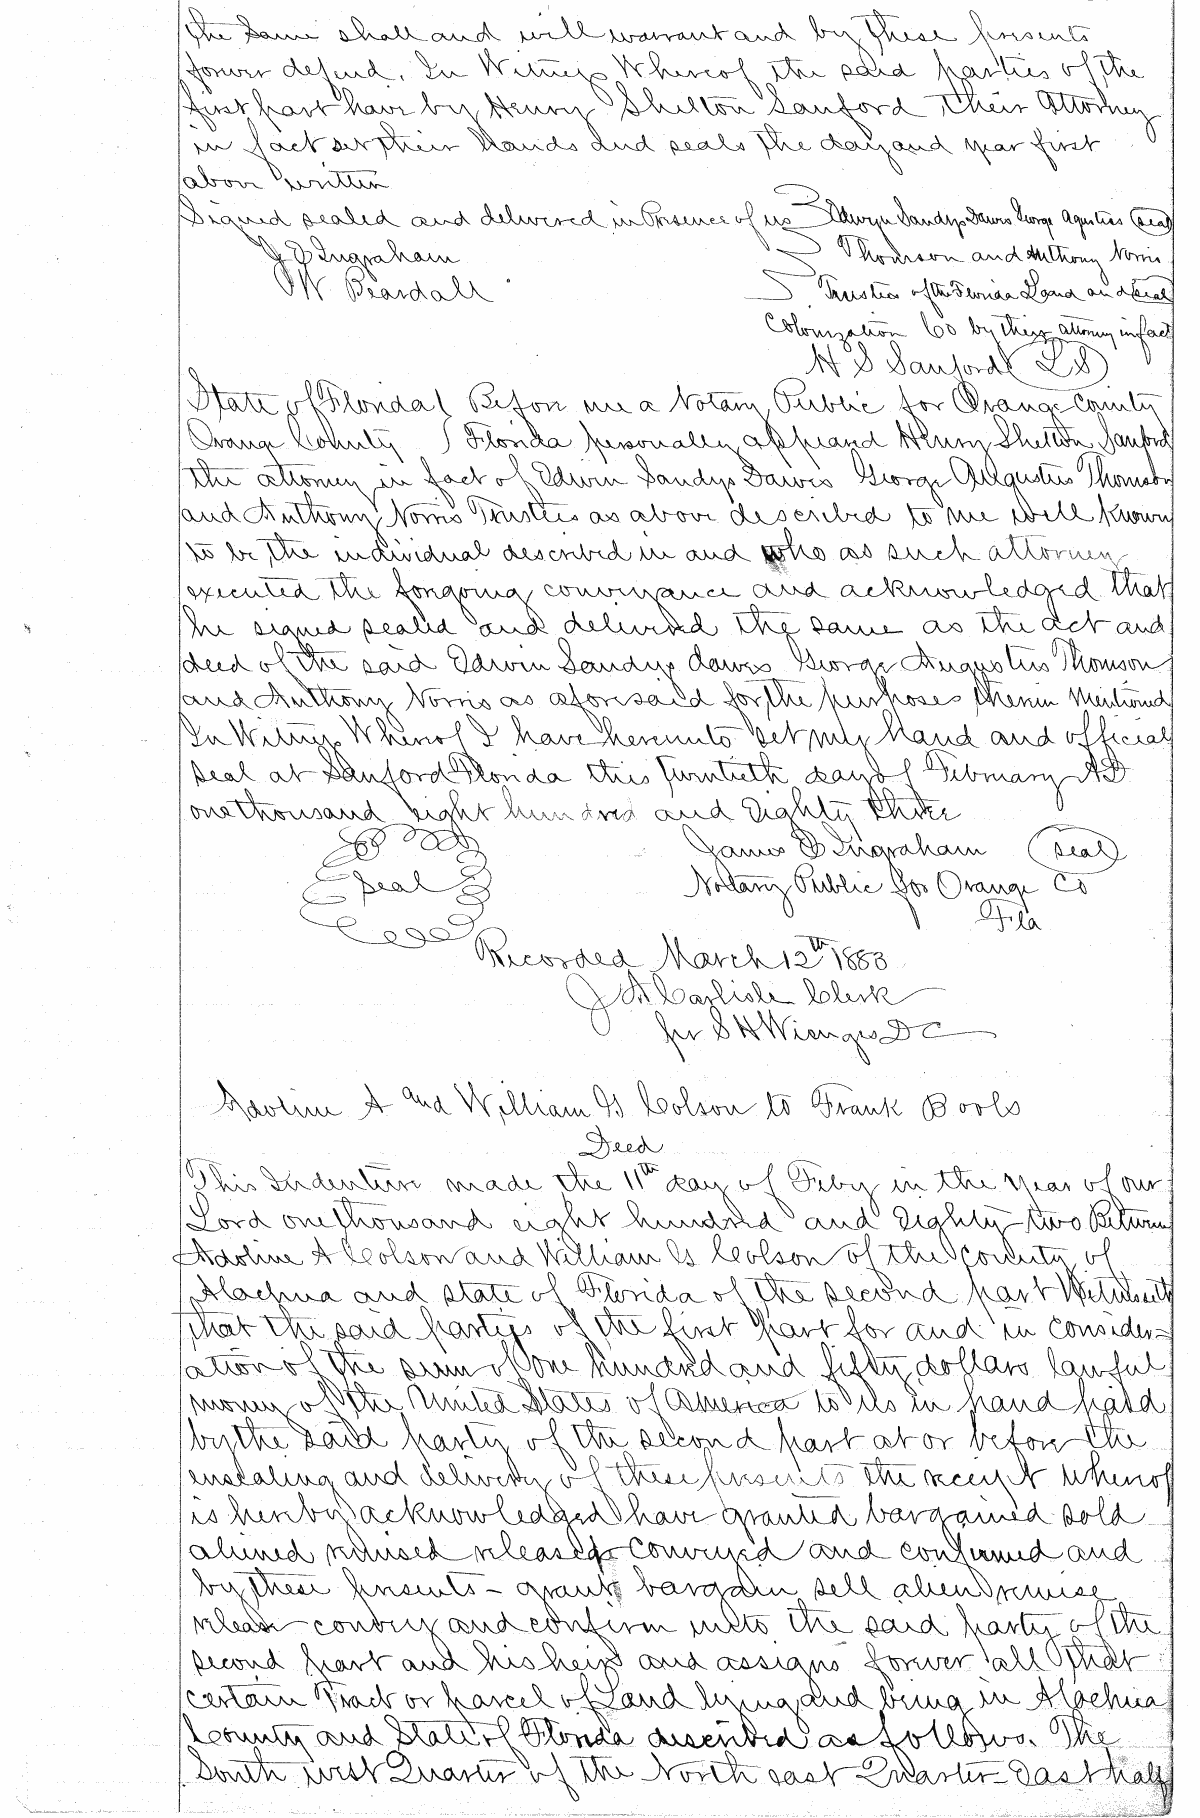 the same shall and will warrant and by these presents
forever defend. In Witness Whereof the said parties of the
first part have by Henry Shelton Sanford their Attorney
in fact set their hands and seals the day and year first
above written
Signed sealed and delivered in Presence of us Edwyn Sandys Dawes George Agustius (seal)
J E Ingraham Thomson and Anthony Norris
W Beardall Trustees of the Florida Land and (seal)
Colonization Co by their attorney in fact
H S Sanford (L S)
State of Florida Before me a Notary Public for Orange County
Orange County Florida personally appeared Henry Shelton Sanford
the attorney in fact of Edwin Sandys Dawes George Augustus Thomson
and Anthony Norris Trustees as above described to me well known
to be the individual described in and who as such attorney
executed the forgoing conveyance and acknowledged that
he signed sealed and delivered the same as the act and
deed of the said Edwin Sandys dawes George Augustus Thomson
and Anthony Norris as aforesaid for the purposes therein mentioned
In Witness Whereof I have hereunto set my hand and official
seal at Sanford Florida this Twentieth day of February AD
one thousand eight hundred and Eighty three
James E Ingraham (seal)
Seal Notary Public for Orange Co
Fla
Recorded March 12th 1883
J A Carlisle Clerk
per S H Wienges D C
Adoline A and William G Colson to Frank Pools
Deed
This Indenture made the 11th day of Feby in the Year of our
Lord one thousand eight hundred and Eighty two Between
Adoline A Colson and William G Colson of the County of
Alachua and state of Florida of the second part Witnesseth
that the said parties of the first part for and in consider=
ation of the sum of one hundred and fifty dollars lawful
money of the United States of America to us in hand paid
by the said party of the second part at or before the
ensealing and delivery of these presents the receipt whereof
is hereby acknowledged have granted bargained sold
aliened remised released conveyed and confirmed and
by these presents - grant bargain sell alien remise
release convey and confirm unto the said party of the
second part and his heirs and assigns forever all that
certain Tract or parcel of Land lying and being in Alachua
County and State of Florida described as follows. The
South west Quarter of the North east Quarter - East half